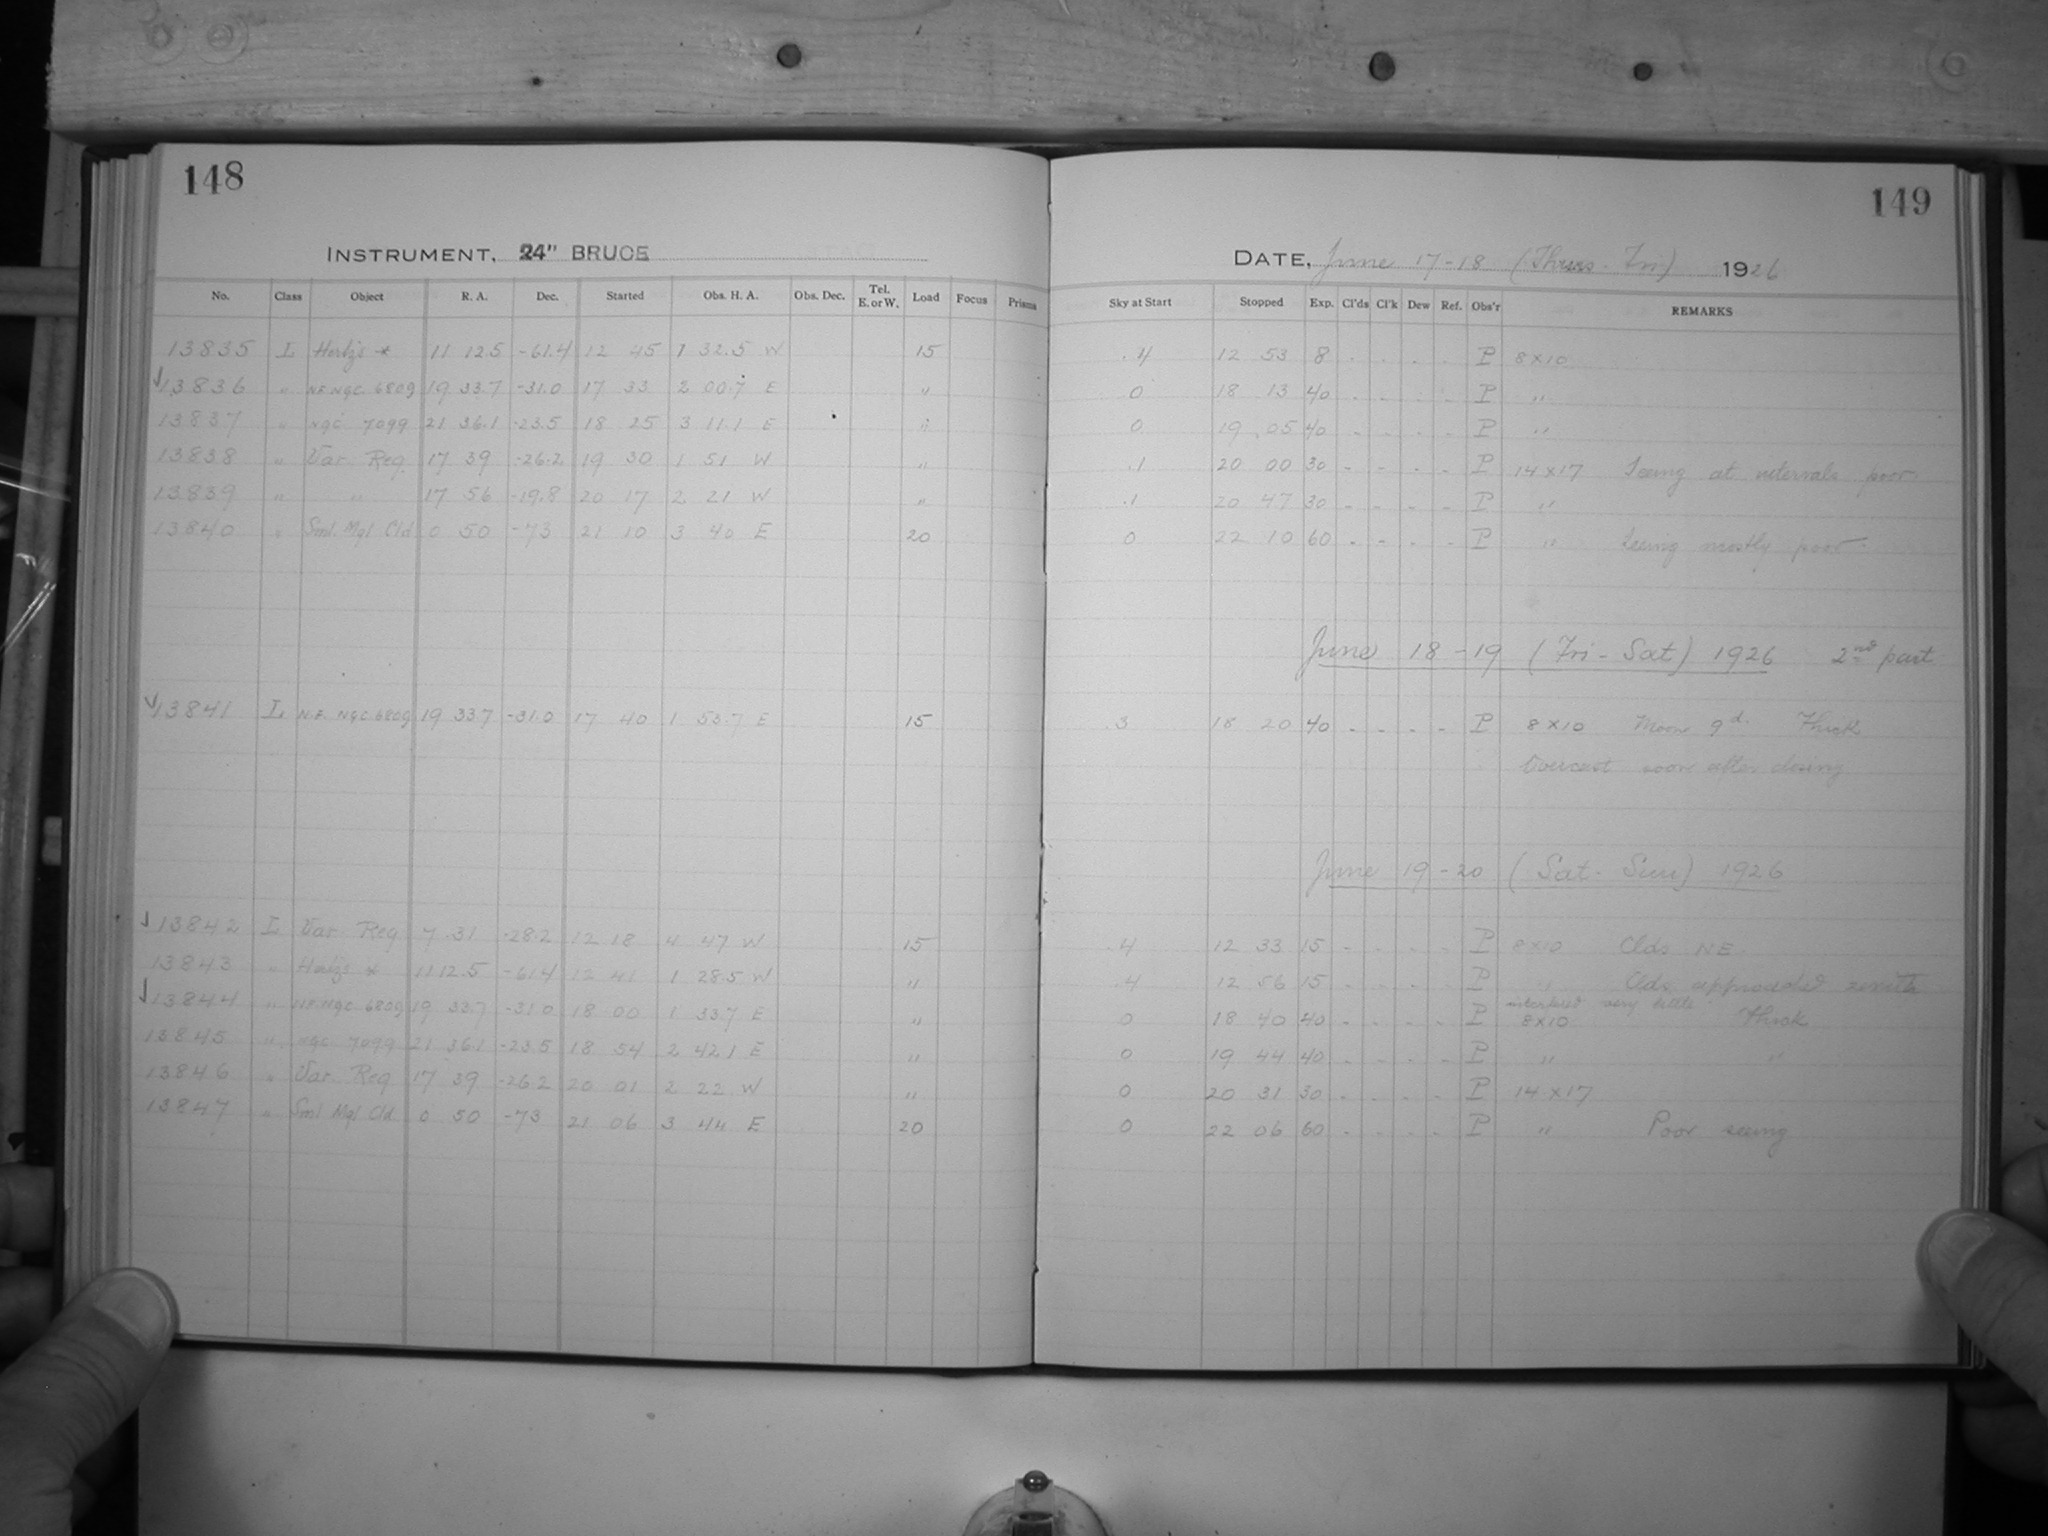 148
INSTRUMENT, 24" BRUCE
No. Class Object R. A. Dec. Started Obs. H. A. Obs. Dec. Tel. E. or W. Load Focus Prisms
13835 L Hertz's * 11 12.5 -61.4 12 45 1 32.5 W 15
13836 " N.F. NGC 6809 19 33.7 -31.0 17 33 2 00.7 E "
13837 " NGC 7099 21 36.1 -23.5 18 25 3 11.1 E "
13838 " Var. Reg. 17 39 -26.2 19 30 1 51 W "
13839 " " 17 56 -19.8 20 17 2 21 W "
13840 " Sml. Mgl Cld 0 50 -73 21 10 3 40 E 20
13841 L N.F. NGC 6809 19 33.7 -31.0 17 40 1 53.7 E 15
13842 L Var Reg 7 31 -28.2 12 18 4 47 W 15
13843 " Hertz's * 11 12.5 -61.4 12 41 1 28.5 W "
13844 " N.F. NGC 6809 19 33.7 -31.0 18 00 1 33.7 E "
13845 " NGC 7099 21 36.1 -23.5 18 54 2 42.1 E "
13846 " Var. Reg 17 39 -26.2 20 01 2 22 W "
13847 " Sml Mgl Cld 0 50 -73 21 06 3 44 E 20
149
DATE, June 17-18 (Thurs. Fri) 1926
Sky at Start Stopped Exp. Cl'ds Cl'k Dew Ref. Obs'r REMARKS
.4 12 53 8 - - - - P 8x10
0 18 13 40 - - - - P "
0 19 05 40 - - - - P "
.1 20 00 30 - - - - P 14x17 Seeing at intervals poor
.1 20 47 30 - - - - P "
0 22 10 60 - - - - P " Seeing mostly poor
June 18-19 (Fri-Sat) 1926 2nd part
.3 18 20 40 - - - - P 8x10 Moon 9d. Thick
Overcast soon after closing
June 19-20 (Sat-Sun) 1926
.4 12 33 15 - - - - P 8x10 Clds NE
.4 12 56 15 - - - - P " Clds approached zenith
interfered very little
0 18 40 40 - - - - P 8x10 Thick
0 19 44 40 - - - - P " "
0 20 31 30 - - - - P 14x17
0 22 06 60 - - - - P " Poor seeing